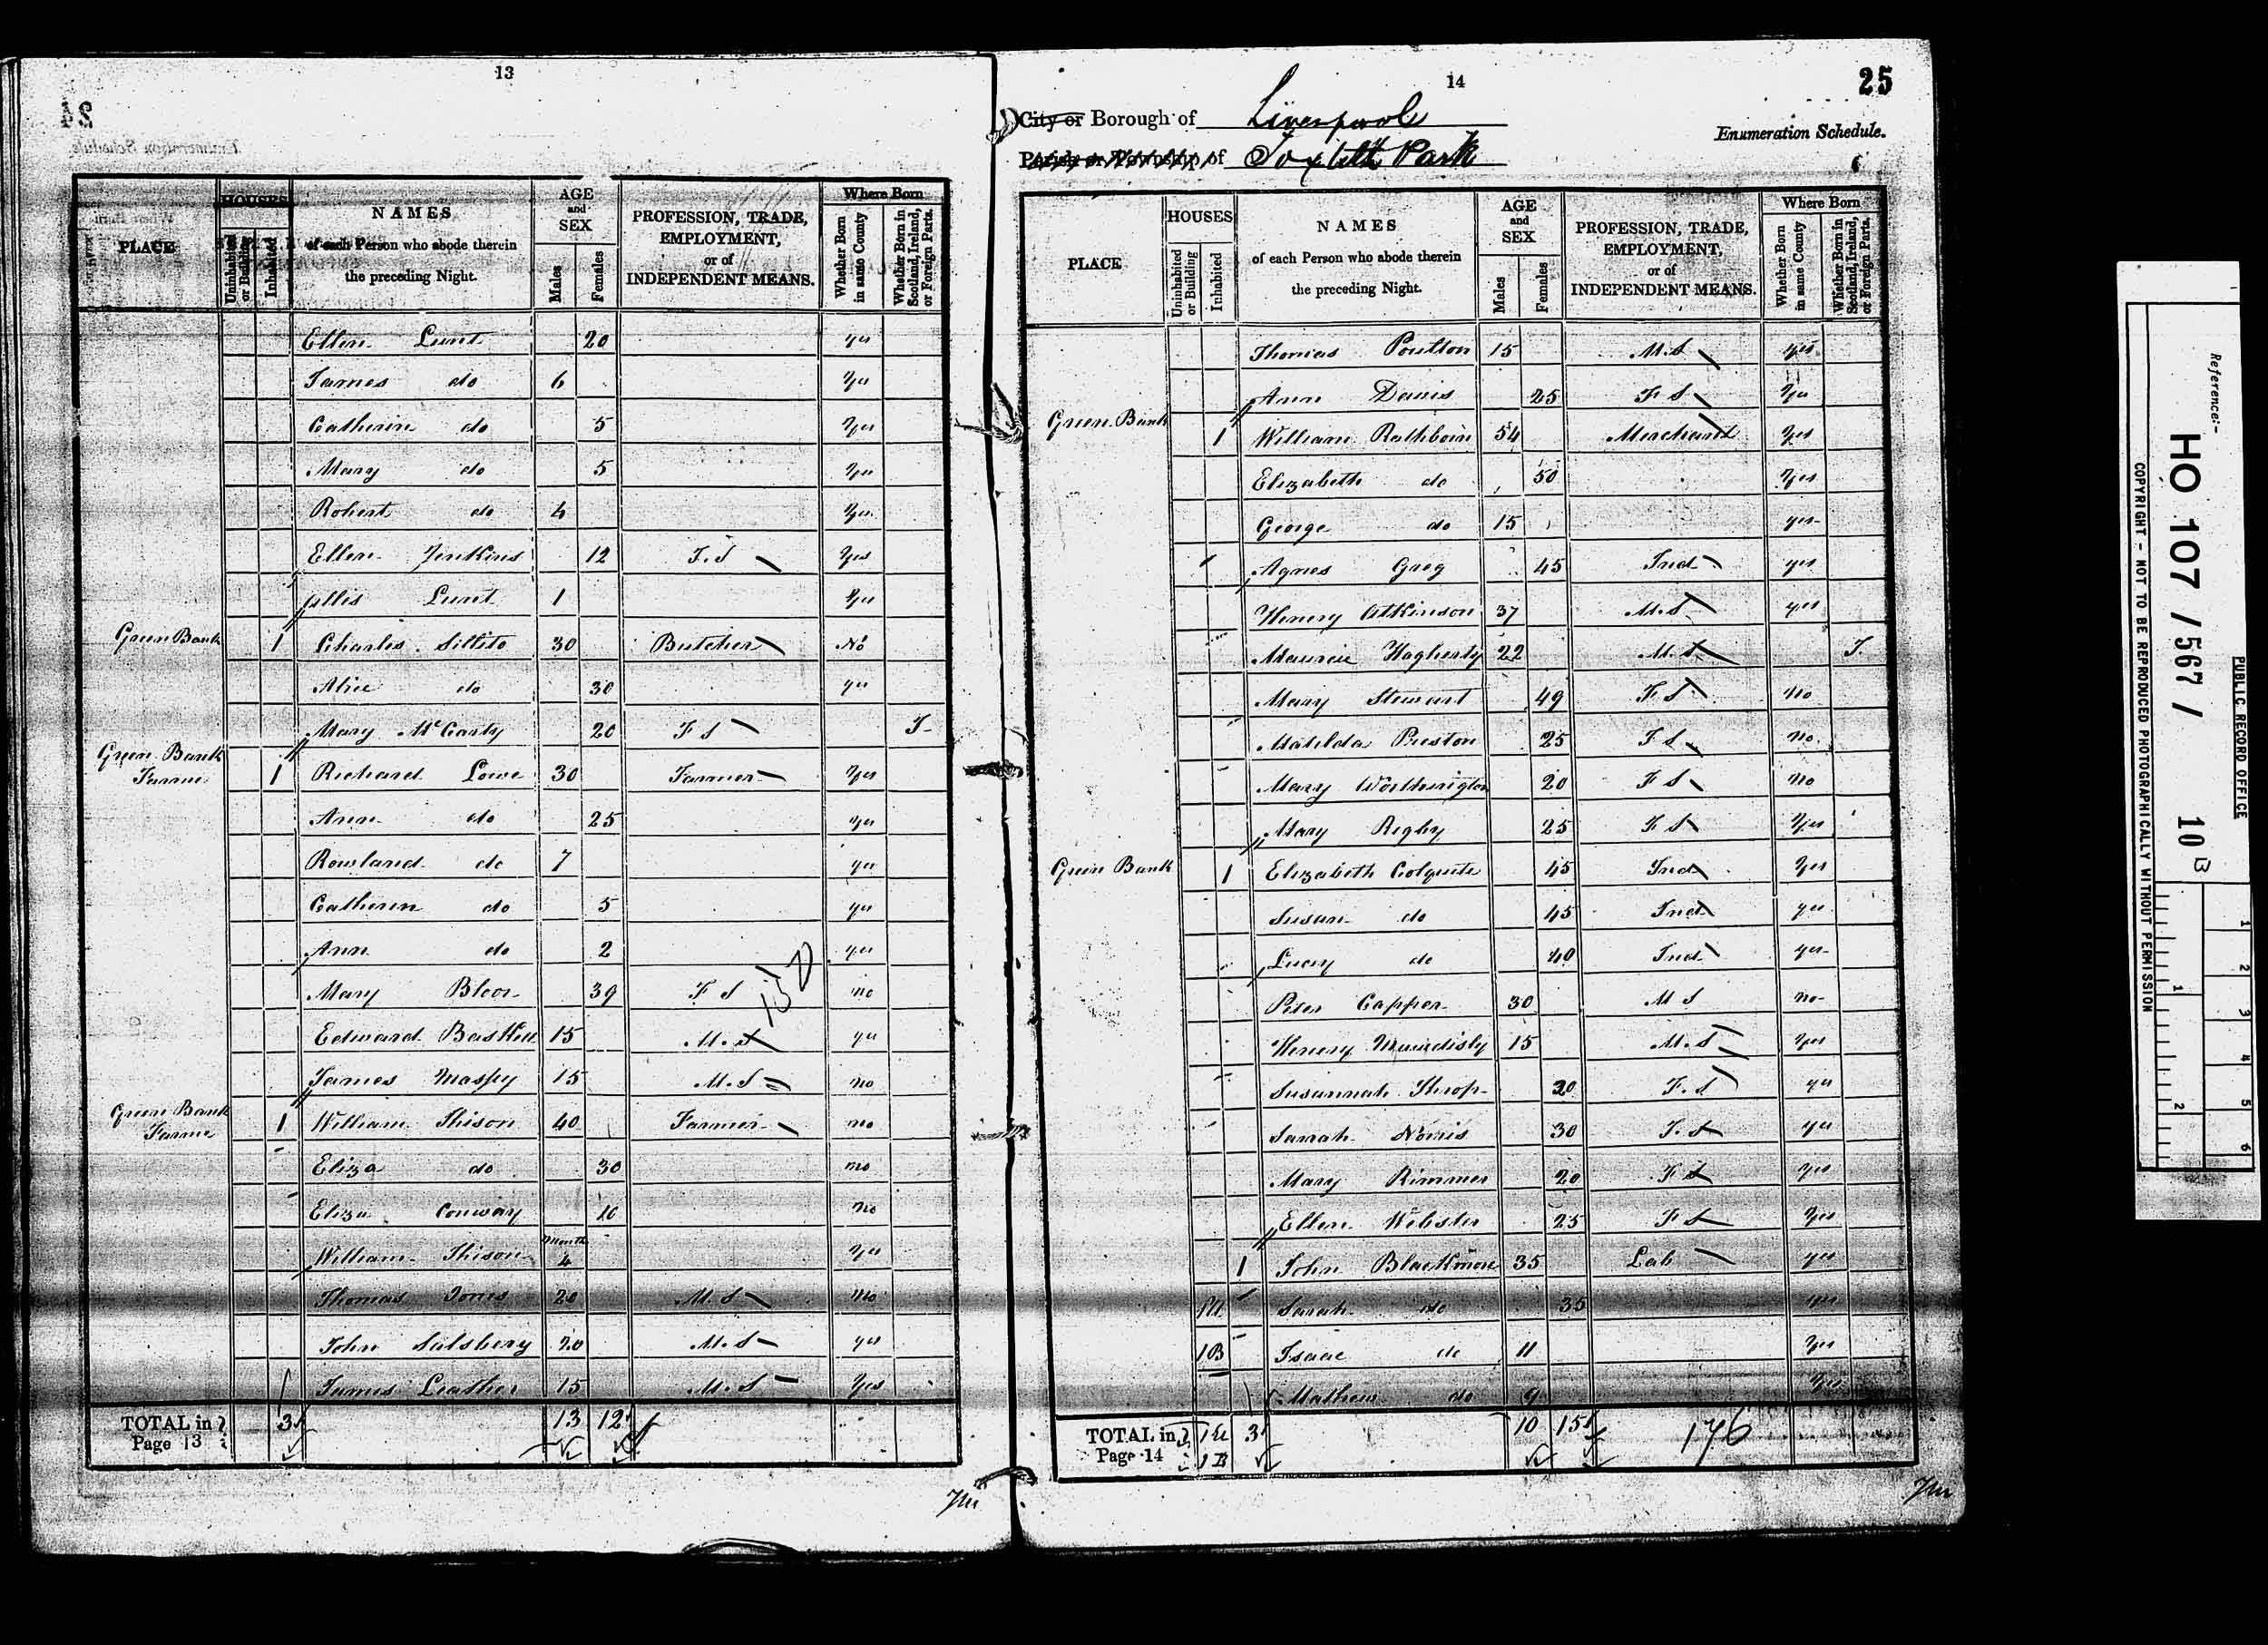 13
PLACE
HOUSES
Uninhabited or Building
Inhabited
NAMES
of each Person who abode therein
the preceding Night.
AGE
and
SEX
Males
Females
PROFESSION, TRADE,
EMPLOYMENT,
or of
INDEPENDENT MEANS.
Where Born
Whether Born in same County
Whether Born in Scotland, Ireland, or Foreign Parts.
Ellen Lunt 20 yes
James do 6 Yes
Catherin do 5 Yes
Mary do 5 Yes
Robert do 4 Yes
Ellen Jenkins 12 F.S Yes
Ellis Lunt 1 Yes
Green Bank 1 Charles Sillito 30 Butcher No
Alice do 30 yes
Mary McCarty 20 F S I
Green Bank Farme 1 Richard Lowe 30 Farmer Yes
Ann do 25 yes
Rowland do 7 yes
Catheren do 5 yes
Ann do 2 yes
Mary Bloor 39 F S no
Edward 15 M.S yes
James Massey 15 M.S no
Green Bank Farme 1 William Thison 40 Farmer no
Eliza do 30 no
Eliza Conway 10 no
William Thison Month 4 Yes
Thomas Jones 20 M.S no
John Salsbery 20 M.S yes
James Leather 15 M.S Yes
TOTAL in
Page 13
3 13 12
14
25
City or Borough of Liverpool
Parish or Township of Toxteth Park
Enumeration Schedule.
PLACE
HOUSES
Uninhabited or Building
Inhabited
NAMES
of each Person who abode therein
the preceding Night.
AGE
and
SEX
Males
Females
PROFESSION, TRADE,
EMPLOYMENT,
or of
INDEPENDENT MEANS.
Where Born
Whether Born in same County
Whether Born in Scotland, Ireland, or Foreign Parts.
Thomas Poulton 15 M.S yes
Ann Davis 25 F S Yes
Green Bank 1 William Rathboin 54 Merchant Yes
Elizabeth do 50 Yes
George do 15 yes
Agnes Greg 45 Ind yes
Henery Atkinson 37 M.S yes
Hagherty 22 M.S I.
Mary Stewart 49 F S no
Matilda Preston 25 F S no
Mary Worthington 20 F S no
Mary Rigby 25 F S Yes
Green Bank 1 Elizabeth Colquite 45 Ind Yes
Susan do 45 Ind yes
Lucy do 40 Ind yes
Peter Capper 30 M S no
Henery 15 M.S Yes
Susannah Throp 20 F.S yes
Sarrah Norris 30 F.S yes
Mary Rimmer 20 F S yes
Ellen Webster 25 F S Yes
1 John Blackmore 35 Lab yes
1U Sarah do 35 yes
1B Isaac do 11 Yes
Mathew do 9 Yes
TOTAL in
Page 14
1U 3 10 15 176
1B
Reference:-
HO 107 / 567 / 10 B
PUBLIC RECORD OFFICE
COPYRIGHT - NOT TO BE REPRODUCED PHOTOGRAPHICALLY WITHOUT PERMISSION
1 2 3 4 5 6
1 2